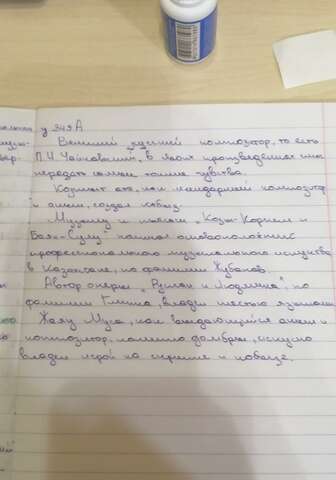 у 349А
Великий русский композитор, то есть
П.И. Чайковский, в своих произведениях смог
передать самые тонкие чувства.
Коркыт ата, как легендарный композитор
и акын, создал кобыз.
Музыку к пьесам "Козы-Корпеш и
Баян-Сулу" написал основоположник
профессионального музыкального искусства
в Казахстане, по фамилии Жубанов.
Автор оперы "Руслан и Людмила", по
фамилии Глинка, владел шестью языками
Жаяу Муса, как выдающийся акын и
композитор, помимо домбры, искусно
владел игрой на скрипке и кобызе.